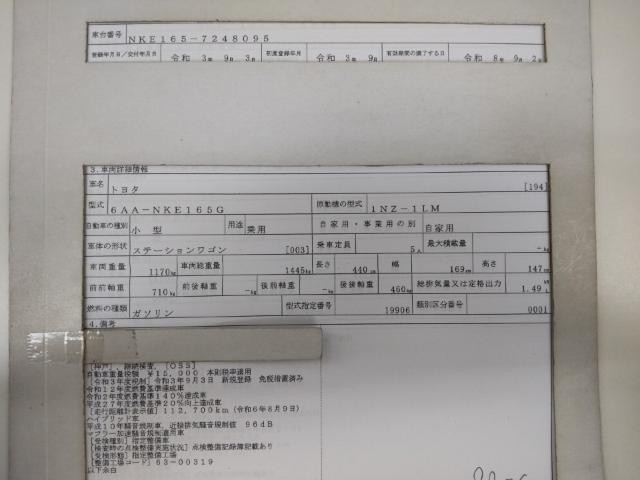 車台番号 NKE165-7248095
登録年月日/交付年月日 令和 3年 9月 3日 初度登録年月 令和 3年 9月 有効期間の満了する日 令和 8年 9月 2日
3.車両詳細情報
車名 トヨタ [194]
型式 6AA-NKE165G 原動機の型式 1NZ-1LM
自動車の種別 小型 用途 乗用 自家用・事業用の別 自家用
車体の形状 ステーションワゴン [003] 乗車定員 5人 最大積載量 -kg
車両重量 1170kg 車両総重量 1445kg 長さ 440cm 幅 169cm 高さ 147cm
前前軸重 710kg 前後軸重 -kg 後前軸重 -kg 後後軸重 460kg 総排気量又は定格出力 1.49 kW L
燃料の種類 ガソリン 型式指定番号 19906 類別区分番号 0001
4.備考
[神戸], 継続検査, [OSS]
自動車重量税額 ¥15,000 本則税率適用
[令和3年度税制] 令和3年9月3日 新規登録 免税措置済み
令和12年度燃費基準達成車
令和2年度燃費基準140%達成車
平成27年度燃費基準20%向上達成車
[走行距離計表示値] 112,700km (令和6年8月9日)
ハイブリッド車
平成10年騒音規制車, 近接排気騒音規制値 96dB
マフラー加速騒音規制適用車
[受検種別] 指定整備車
[検査時の点検整備実施状況] 点検整備記録簿記載あり
[受検形態] 指定整備工場
[整備工場コード] 63-00319
以下余白